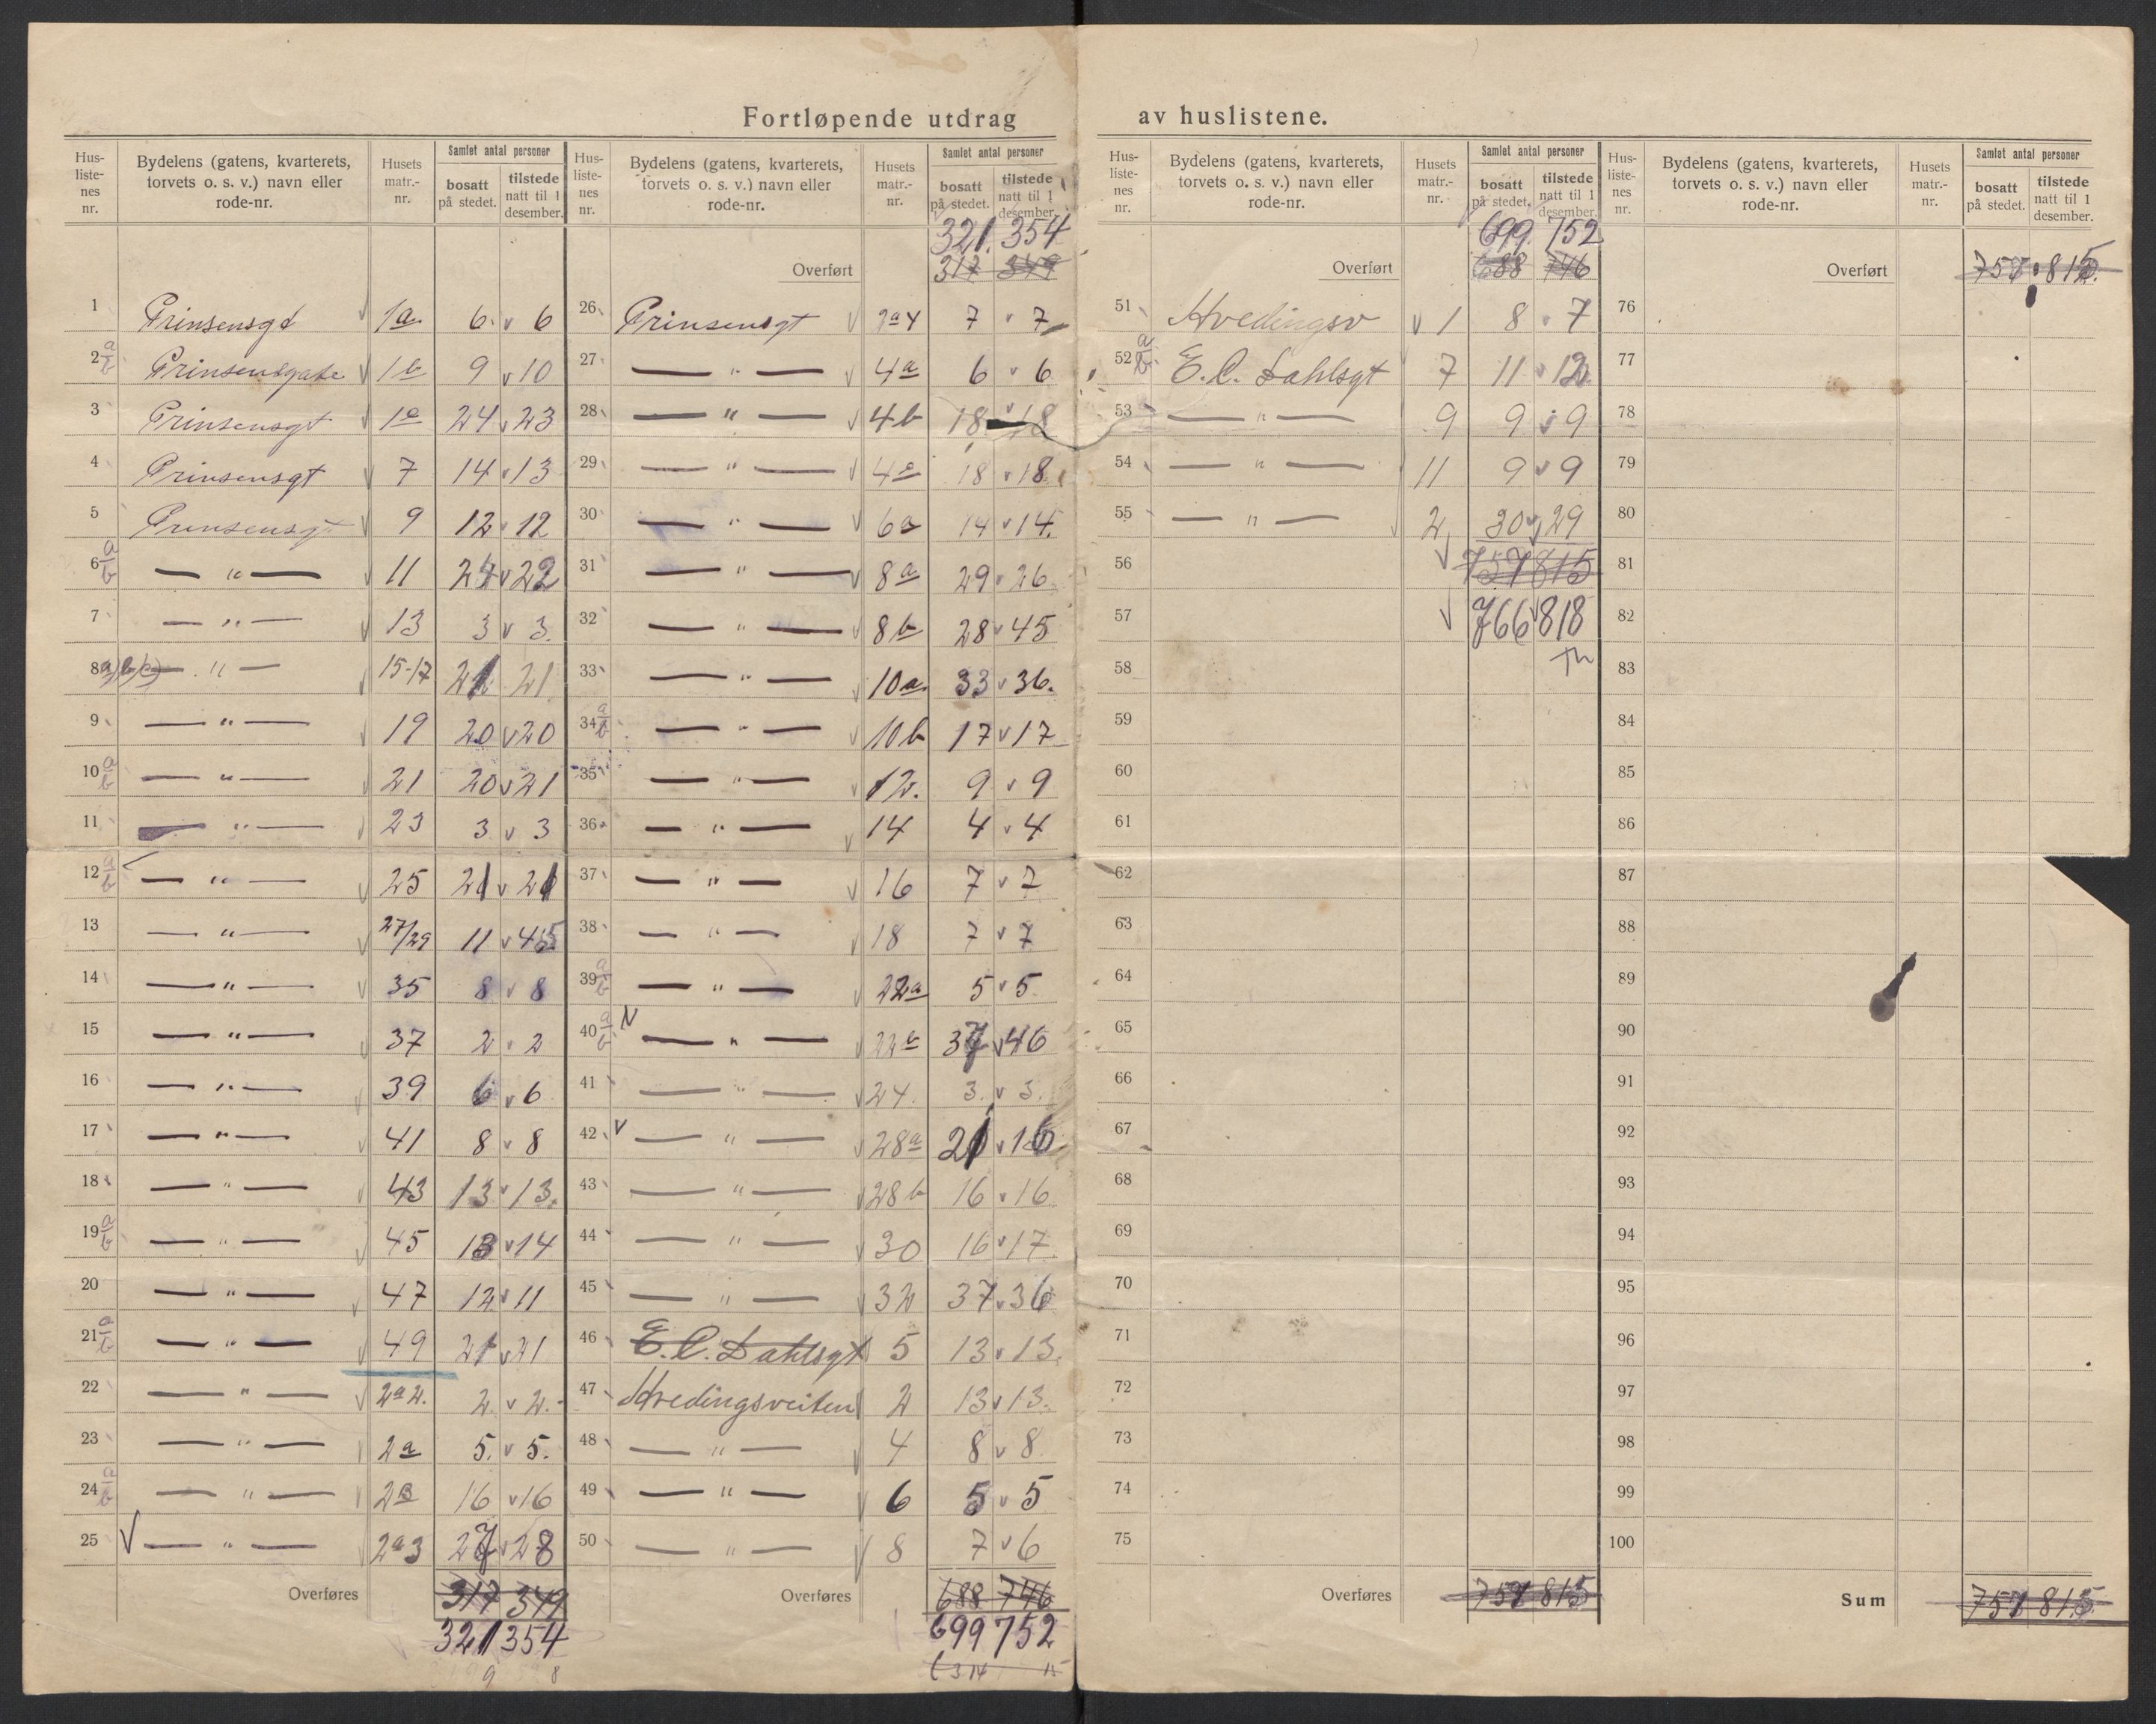 Fortløpende utdrag av huslistene.
Hus-liste-nes nr. Bydelens (gatens, kvarterets, torvets o. s. v.) navn eller rode-nr. Husets matr.-nr. Samlet antal personer bosatt på stedet. tilstede natt til 1 desember.
1 Prinsensgt 1a. 6. v 6
2 a/b Prinsensgate 1b 9 v 10
3 Prinsensgt 1c 24 v 23
4 Prinsensgt 7 14 v 13
5 Prinsensgt 9 12 v 12
6 a/b — " — 11 24 v 22
7 — " — 13 3 v 3.
8 a/b/c) — " — 15-17 21 21
9 — " — 19 20 v 20
10 a/b — " — 21 20 v 21
11 — " — 23 3 v 3
12 a/b — " — 25 21 v 21
13 — " — 27/29 11 v 45
14 — " — 35 8 v 8
15 — " — 37 2 v 2
16 — " — 39 6 v 6
17 — " — 41 8 v 8
18 — " — 43 13 v 13.
19 a/b — " — 45 13 v 14
20 — " — 47 12 v 11
21 a/b — " — 49 21 v 21
22 — " — 2a2. 2 v 2.
23 — " — 2a 5. v 5.
24 a/b — " — 2B 16 v 16
25 v — " — 2a3 27 v 28
Overføres 317 349
321 354
9 8
Hus-liste-nes nr. Bydelens (gatens, kvarterets, torvets o. s. v.) navn eller rode-nr. Husets matr.-nr. Samlet antal personer bosatt på stedet. tilstede natt til 1 desember.
321. 354
Overført 317 349
26 Prinsensgt v 2a4 7 v 7
27 — " — v 4a 6 v 6
28 — " — v 4b 18 v 18
29 — " — 4c 18 v 18
30 — " — v 6a 14 v 14.
31 — " — v 8a 29 v 26
32 — " — v 8b 28 v 45
33 — " — v 10a. 33 v 36.
34 a/b — " — v 10b 17 v 17
35 — " — v 12. 9 v 9
36 — " — v 14 4 v 4
37 — " — v 16 7 v 7
38 — " — 18 7 v 7
39 a/b — " — 22a 5 v 5
40 a/b v — " — 22b 37 v 46
41 — " — v 24. 3. v 3.
42 v — " — v 28a 21 v 16
43 — " — v 28b 16 v 16
44 — " — v 30 16 v 17
45 — " — v 32 37 v 36
46 E. C. Dahlsgt 5 13 v 13.
47 Hvedingsveiten 2 13 v 13.
48 — " — v 4 8 v 8
49 — " — 6 5 v 5
50 — " — v 8 7 v 6
Overføres 688 746
699 752
Hus-liste-nes nr. Bydelens (gatens, kvarterets, torvets o. s. v.) navn eller rode-nr. Husets matr.-nr. Samlet antal personer bosatt på stedet. tilstede natt til 1 desember.
699. 752
Overført 688 746
51 Hvedingsv v 1 8 v 7
52 a/b E. C. Dahlsgt 7 11 v 12
53 — " — 9 9 v 9
54 — " — 11 9 v 9
55 — " — 2 30 v 29
56 v 757 815
57 v 766 v 818
58
59
60
61
62
63
64
65
66
67
68
69
70
71
72
73
74
75
Overføres 757 815
Hus-liste-nes nr. Bydelens (gatens, kvarterets, torvets o. s. v.) navn eller rode-nr. Husets matr.-nr. Samlet antal personer bosatt på stedet. tilstede natt til 1 desember.
Overført 757 815.
76
77
78
79
80
81
82
83
84
85
86
87
88
89
90
91
92
93
94
95
96
97
98
99
100
Sum 757 815